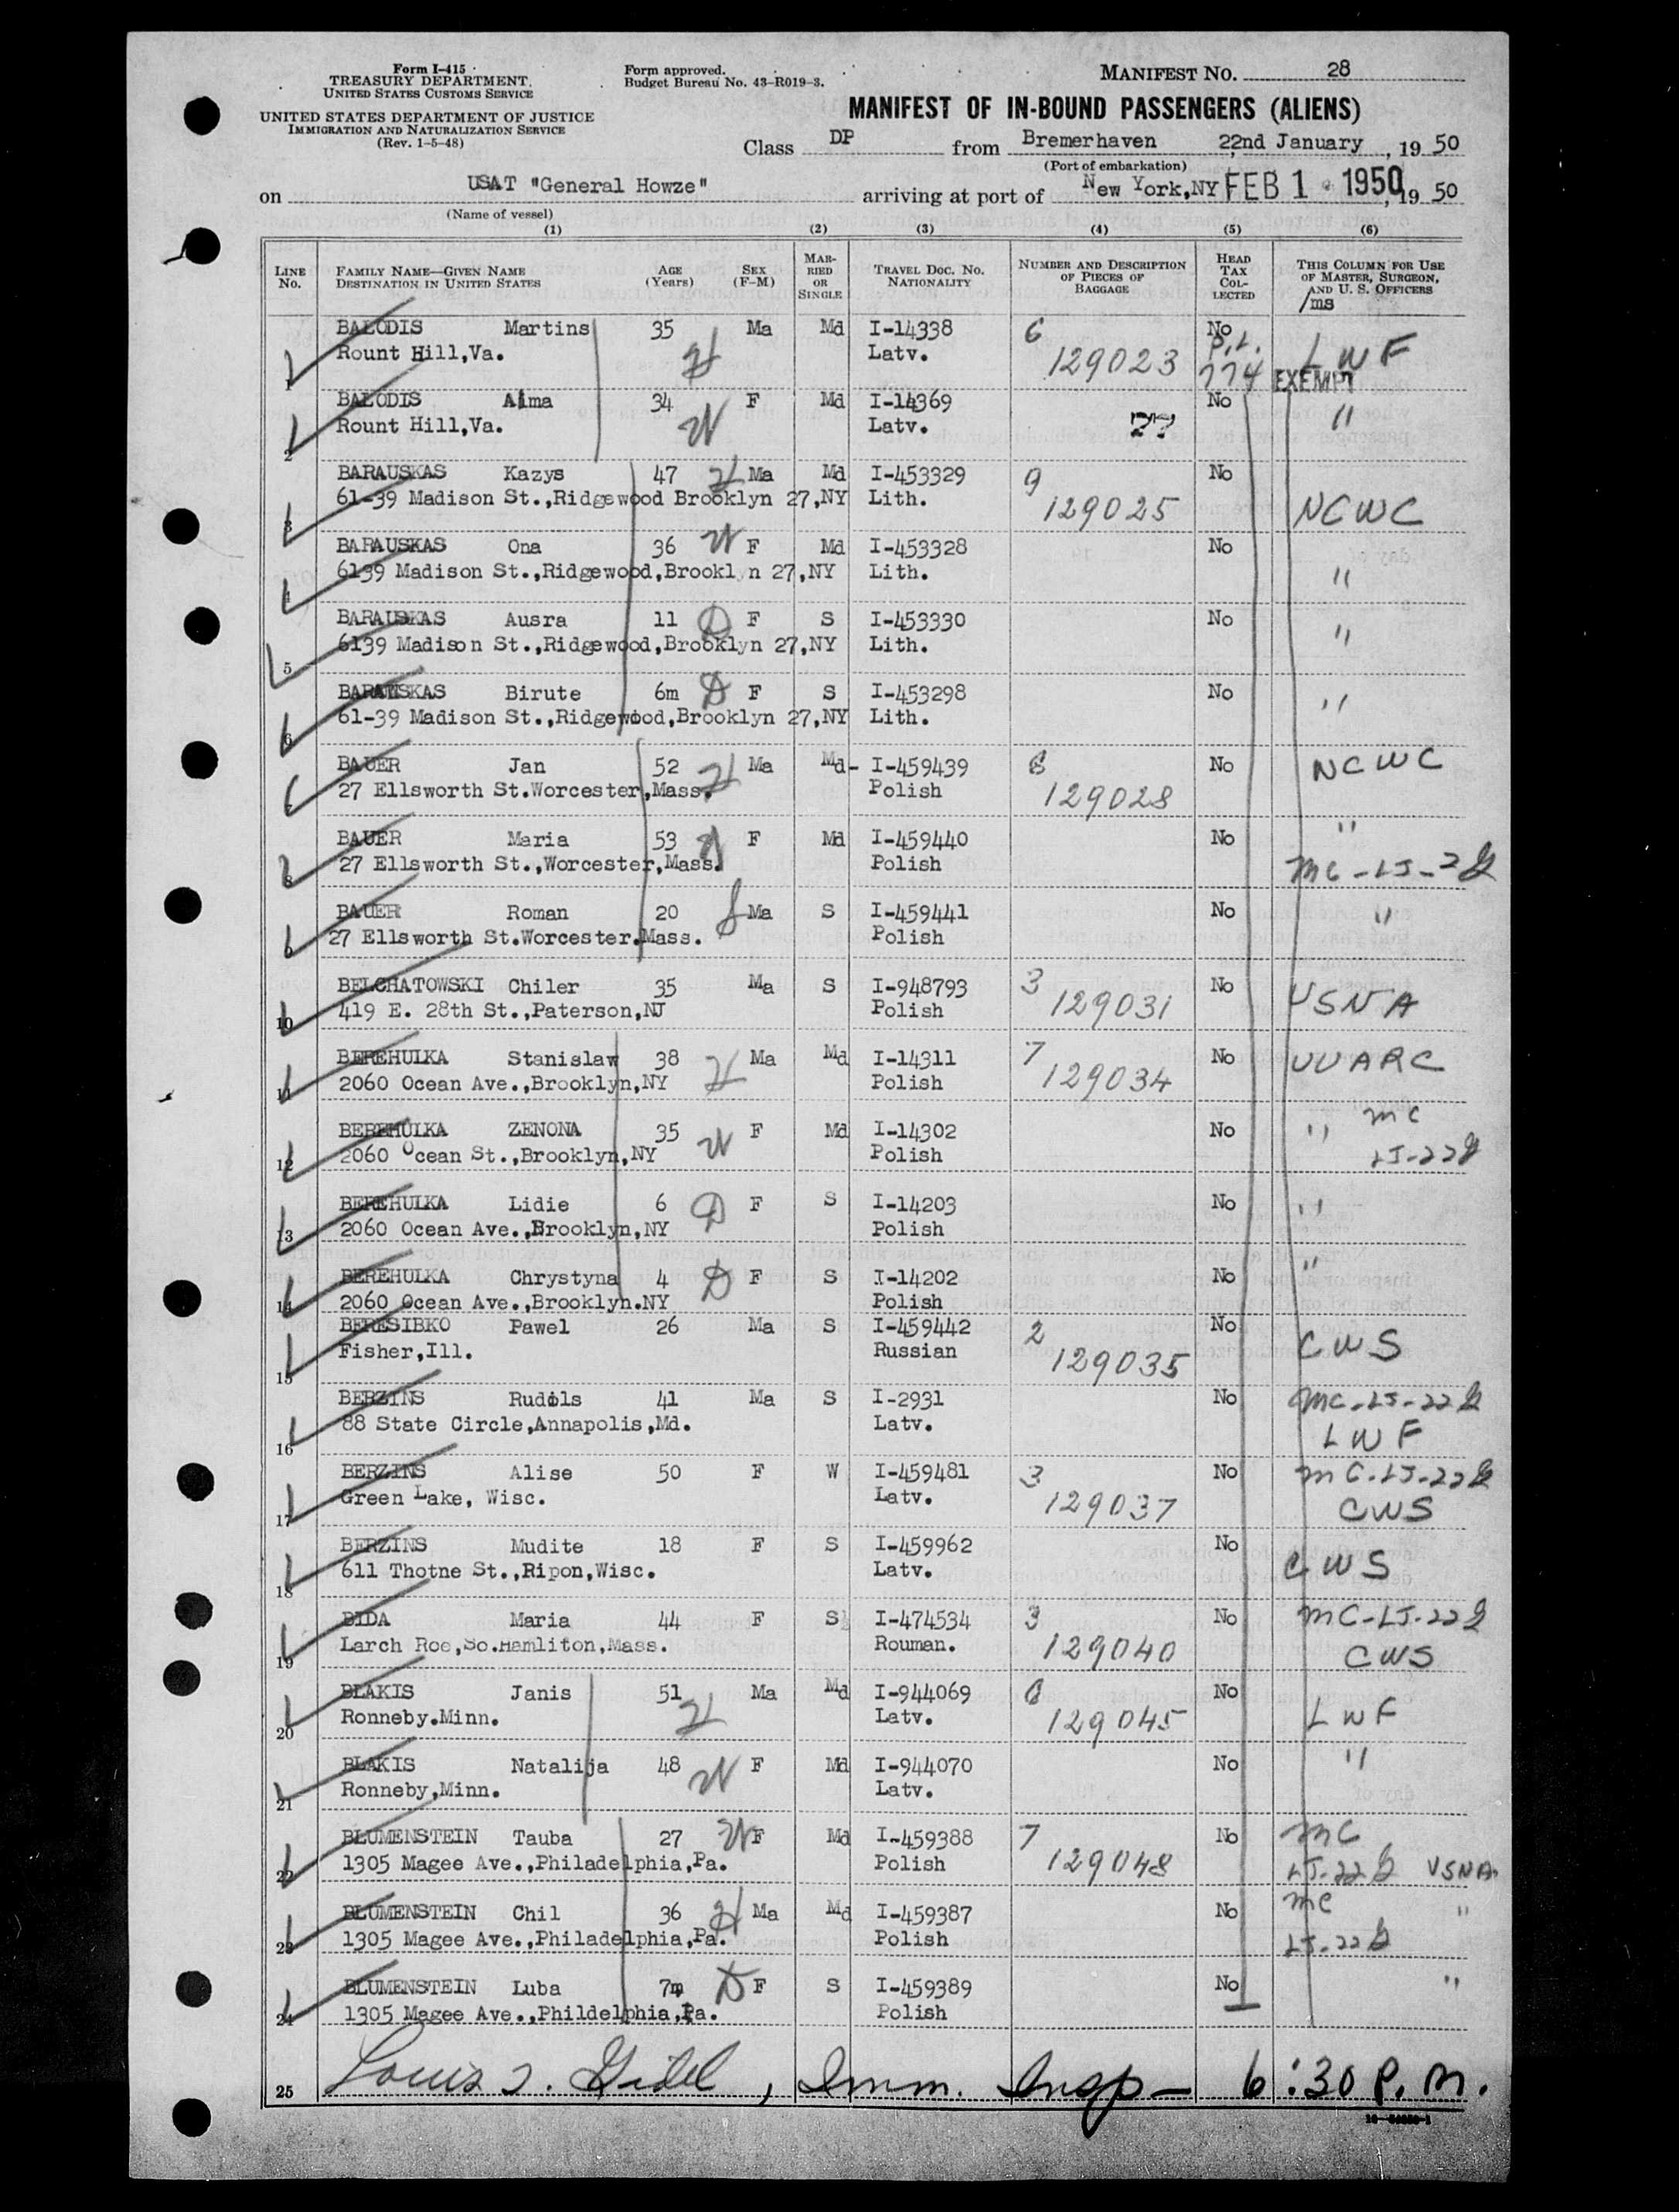 Form I-415
TREASURY DEPARTMENT
UNITED STATES CUSTOMS SERVICE
UNITED STATES DEPARTMENT OF JUSTICE
IMMIGRATION AND NATURALIZATION SERVICE
(Rev. 1-5-48)
Form approved.
Budget Bureau No. 43-R019-3.
MANIFEST NO. 28
MANIFEST OF IN-BOUND PASSENGERS (ALIENS)
Class DP from Bremerhaven 22nd January, 19 50
(Port of embarkation)
on USAT "General Howze" arriving at port of New York,NY FEB 1 1950, 19 50
(Name of vessel)
(1) (2) (3) (4) (5) (6)
LINE No. FAMILY NAME—GIVEN NAME DESTINATION IN UNITED STATES AGE (Years) SEX (F-M) MARRIED OR SINGLE TRAVEL DOC. NO. NATIONALITY NUMBER AND DESCRIPTION OF PIECES OF BAGGAGE HEAD TAX COLLECTED THIS COLUMN FOR USE OF MASTER, SURGEON, AND U. S. OFFICERS
/ms
1 BALODIS Martins 35 H Ma Md I-14338 6 No P.L. LWF
Rount Hill,Va. Latv. 129023 774 EXEMPT
2 BALODIS Alma 34 W F Md I-14369 No "
Rount Hill,Va. Latv.
3 BARAUSKAS Kazys 47 H Ma Md I-453329 9 No
61-39 Madison St.,Ridgewood Brooklyn 27,NY Lith. 129025 NCWC
4 BARAUSKAS Ona 36 W F Md I-453328 No
6139 Madison St.,Ridgewood,Brookl n 27,NY Lith. "
5 BARAUSKAS Ausra 11 D F S I-453330 No
6139 Madison St.,Ridgewood,Brooklyn 27,NY Lith. "
6 BARAUSKAS Birute 6m D F S I-453298 No
61-39 Madison St.,Ridgewood,Brooklyn 27,NY Lith. "
BAUER Jan 52 H Ma Md- I-459439 No NCWC
27 Ellsworth St.Worcester,Mass. Polish 129028
8 BAUER Maria 53 W F Md I-459440 No "
27 Ellsworth St.,Worcester,Mass. Polish
9 BAUER Roman 20 S Ma S I-459441 No "
27 Ellsworth St.Worcester.Mass. Polish
10 BELCHATOWSKI Chiler 35 Ma S I-948793 3 No USNA
419 E. 28th St.,Paterson,NJ Polish 129031
11 BEREHULKA Stanislaw 38 H Ma Md I-14311 7 No UUARC
2060 Ocean Ave.,Brooklyn,NY Polish 129034
12 BEREHULKA ZENONA 35 W F Md I-14302 No " MC
2060 Ocean St.,Brooklyn,NY Polish LJ-22
13 BEREHULKA Lidie 6 D F S I-14203 No "
2060 Ocean Ave.,Brooklyn,NY Polish
14 BEREHULKA Chrystyna 4 D F S I-14202 No "
2060 Ocean Ave.,Brooklyn.NY Polish
15 BERESIBKO Pawel 26 Ma S I-459442 2 No CWS
Fisher,Ill. Russian 129035
16 BERZINS Rudols 41 Ma S I-2931 No MC-LJ-22
88 State Circle,Annapolis,Md. Latv. LWF
17 BERZINS Alise 50 F W I-459481 3 No MC-LJ-22
Green Lake, Wisc. Latv. 129037 CWS
18 BERZINS Mudite 18 F S I-459962 No
611 Thotne St.,Ripon,Wisc. Latv. CWS
19 BIDA Maria 44 F S I-474534 3 No MC-LJ-22
Larch Roe,So.Hamliton,Mass. Rouman. 129040 CWS
20 BLAKIS Janis 51 H Ma Md I-944069 No LWF
Ronneby.Minn. Latv. 129045
21 BLAKIS Natalija 48 W F Md I-944070 No "
Ronneby,Minn. Latv.
22 BLUMENSTEIN Tauba 27 W F Md I-459388 7 No MC
1305 Magee Ave.,Philadelphia,Pa. Polish 129048 LJ-22 USNA
23 BLUMENSTEIN Chil 36 H Ma Md I-459387 No MC "
1305 Magee Ave.,Philadelphia,Pa. Polish LJ-22
24 BLUMENSTEIN Luba 7m D F S I-459389 No "
1305 Magee Ave.,Phildelphia,Pa. Polish
25 Louis , Imm. Insp- 6:30 P.M.